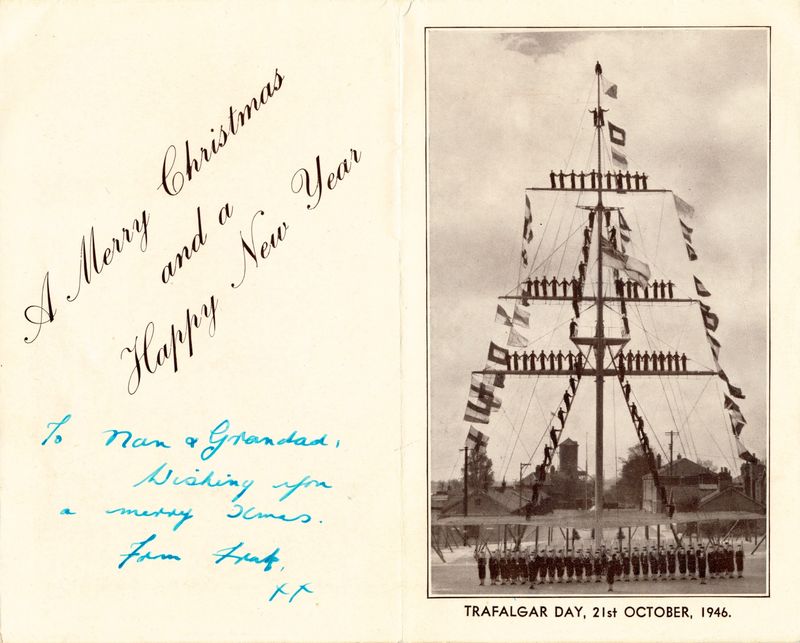 A Merry Christmas
and a
Happy New Year
To Nan & Grandad,
Wishing you
a merry Xmas.
From
xx
TRAFALGAR DAY, 21st OCTOBER, 1946.